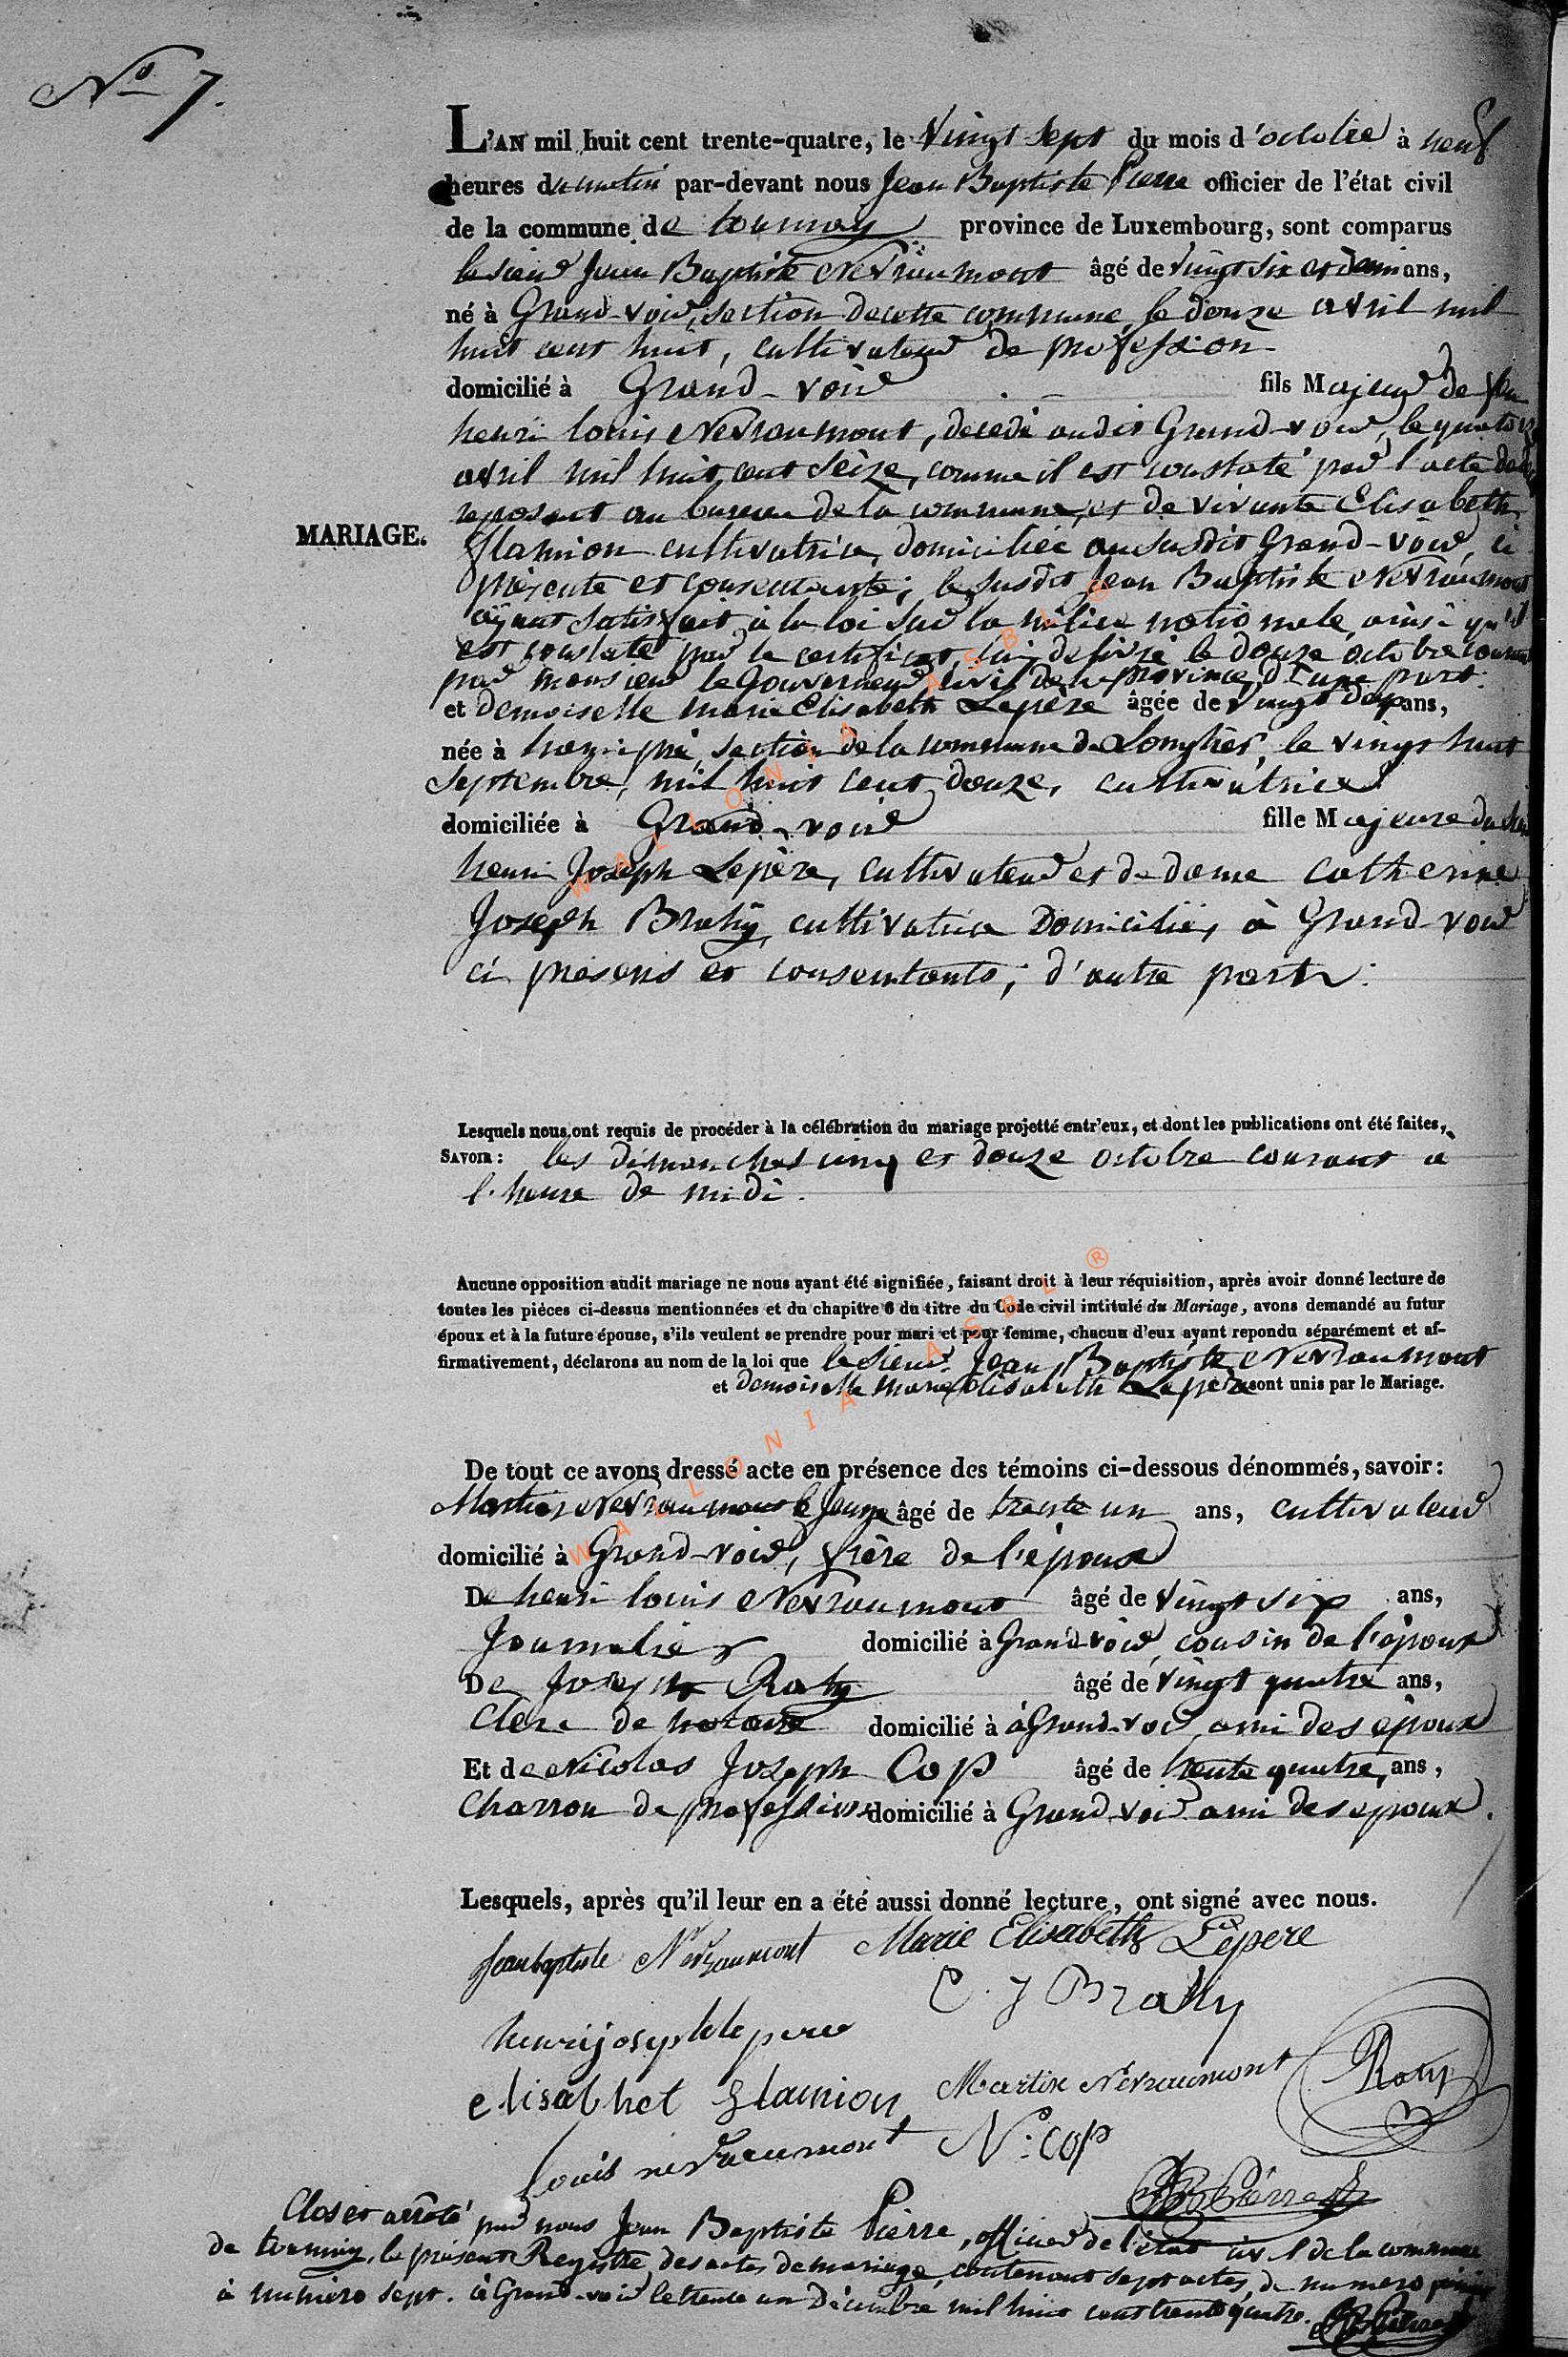 N° 7.
L'AN mil huit cent trente-quatre, le vingt sept du mois d'octobre à neuf
heures du matin par-devant nous Jean Baptiste Pierre officier de l'état civil
de la commune de tournay province de Luxembourg, sont comparus
le sieur Jean Baptiste Nevraumont âgé de vingt six et demi ans,
né à Grand-voir, section de cette commune le douze avril mil
huit cent huit, cultivateur de profession
domicilié à Grand-voir fils Majeur de feu
henri louis Nevraumont, décédé audit Grand-voir, le quatorze
avril mil huit cent seize, comme il est constaté par l'acte de
reposant au bureau de la commune, et de vivante Elisabeth
MARIAGE.
flamion cultivatrice, domiciliée au susdit Grand-voir, ci
présente et consentante; le susdit Jean Baptiste Nevraumont
ayant satisfait à la loi sur la milice nationale, ainsi qu'il
est constaté par le certificat lui délivré le douze octobre courant
par monsieur le Gouverneur civil de la province, d'une part.
et demoiselle marie Elisabeth Lepère âgée de vingt deux ans,
née à section de la commune de Longlier, le vingt huit
Septembre, mil huit cent douze, cultivatrice
domiciliée à Grand-voir fille Majeure du
henri Joseph Lepère, cultivateur et de dame catherine
Joseph Brahy, cultivatrice Domiciliés, à Grand-voir
ci présens et consentants; d'autre part.
Lesquels nous ont requis de procéder à la célébration du mariage projetté entr'eux, et dont les publications ont été faites,
SAVOIR: les dimanches cinq et douze octobre courant a
l'heure de midi.
Aucune opposition audit mariage ne nous ayant été signifiée, faisant droit à leur réquisition, après avoir donné lecture de
toutes les pièces ci-dessus mentionnées et du chapitre 6 du titre du Code civil intitulé du Mariage, avons demandé au futur
époux et à la future épouse, s'ils veulent se prendre pour mari et pour femme, chacun d'eux ayant repondu séparément et af-
firmativement, déclarons au nom de la loi que le sieur Jean Baptiste Nevraumont
et demoiselle marie Elisabeth Lepère sont unis par le Mariage.
De tout ce avons dressé acte en présence des témoins ci-dessous dénommés, savoir:
Martin Nevraumont le Jeune âgé de trente un ans, cultivateur
domicilié à Grand-voir, frère de l'époux
De henri louis Nevraumont âgé de vingt six ans,
Journalier domicilié à Grand-voir, cousin de l'époux
De Joseph Roty âgé de vingt quatre ans,
Clerc de notaire domicilié à à Grand-voir, ami des époux
Et de Nicolas Joseph Cop âgé de trente quatre, ans,
Charron de profession domicilié à Grand-voir ami des epoux.
Lesquels, après qu'il leur en a été aussi donné lecture, ont signé avec nous.
Jean baptiste Nevraumont Marie Elisabeth Lepere
C. J Brahy
henri joseph lepere
elisabhet flamion Martin Nevraumont Roty
louis nevraumont N: cop
JB Pierre
Clos et arrêté par nous Jean Baptiste Pierre, officier de l'état civil de la commune
de tournay, le présent Registre des actes de mariage, contenant sept actes, de numero premier
à numéro sept. à Grand-voir le trente un Décembre mil huit cent trente quatre. JB Pierre
WALLONIA ASBL ®
WALLONIA ASBL ®